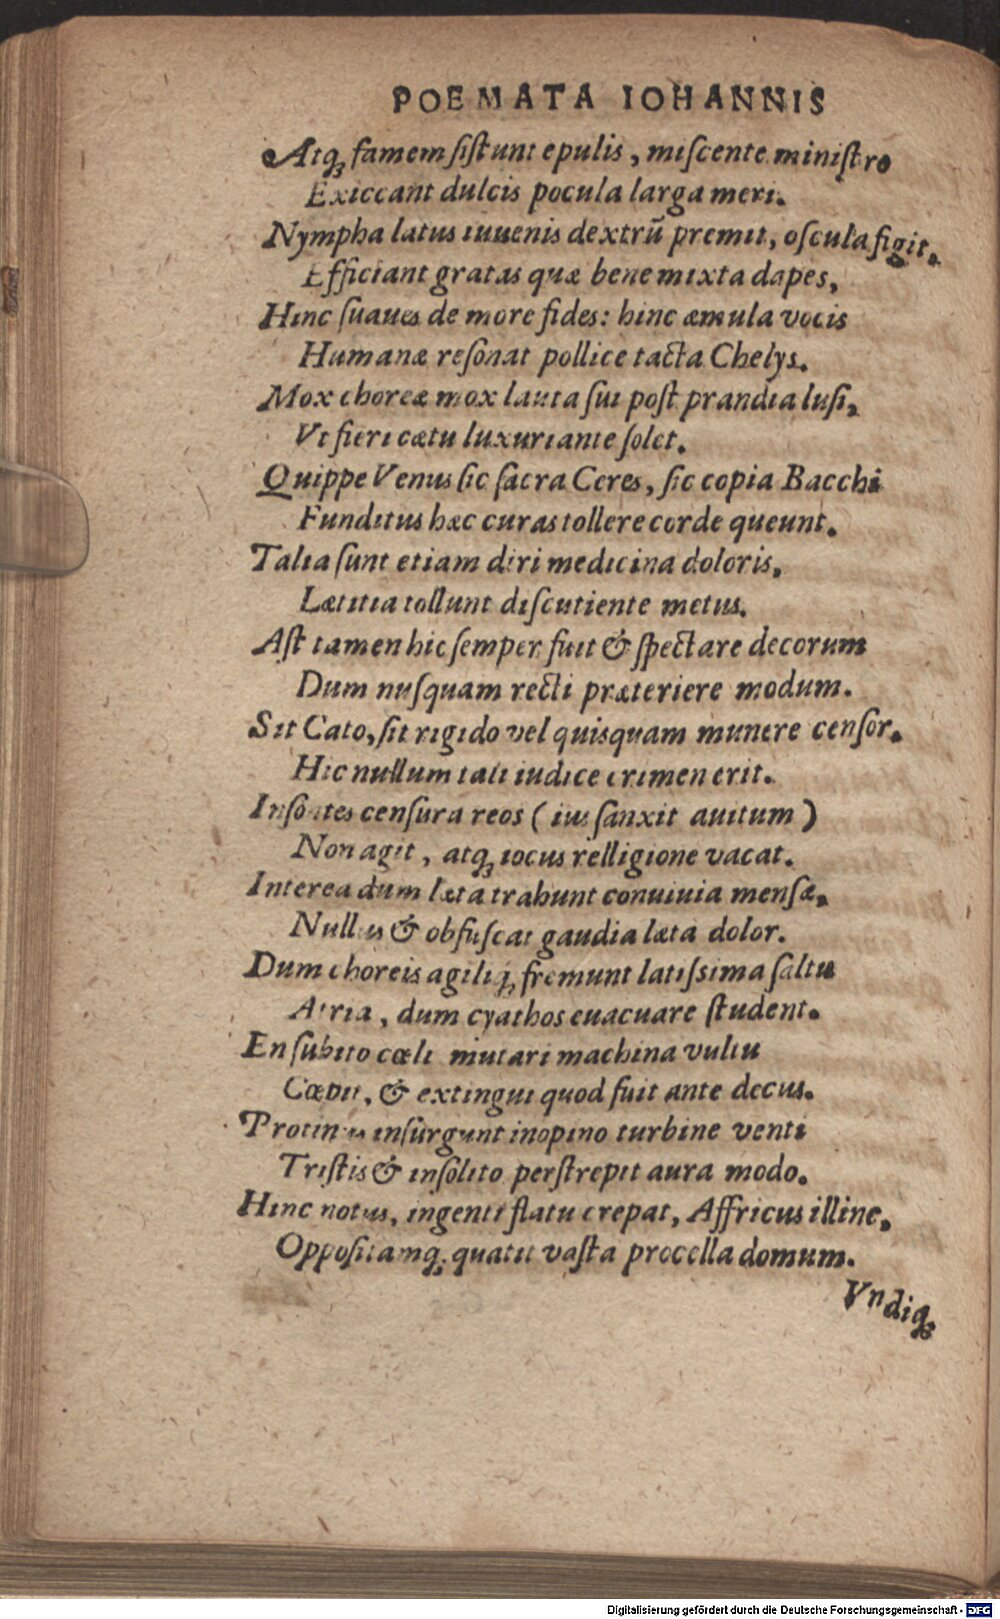 POEMATA IOHANNIS
Atq; famem ſiſtunt epulis, miſcente miniſtro
Exiccant dulcis pocula larga meri.
Nympha latus iuuenis dextrũ premit, oſcula figit,
Efficiant gratas quæ bene mixta dapes,
Hinc ſuaues de more fides: hinc æmula vocis
Humanæ reſonat pollice tacta Chelys.
Mox choreæ mox lauta ſui poſt prandia luſi,
Vt fieri cætu luxuriante ſolet.
Quippe Venus ſic ſacra Ceres, ſic copia Bacchi
Funditus hæc curas tollere corde queunt.
Talia ſunt etiam diri medicina doloris,
Lætitia tollunt diſcutiente metus.
Aſt tamen hic ſemper fuit & ſpectare decorum
Dum nuſquam recti præteriere modum.
Sit Cato, ſit rigido vel quisquam munere cenſor.
Hic nullum tali iudice crimen erit.
Inſontes cenſura reos ( ius ſanxit auitum )
Non agit, atq; iocus relligione vacat.
Interea dum læta trahunt conuiuia menſæ,
Nullus & obfuſcat gaudia læta dolor.
Dum choreis agiliq; fremunt latiſsima ſaltu
Atria, dum cyathos euacuare ſtudent.
En ſubito cœli mutari machina vultu
Cœpit, & extingui quod fuit ante decus.
Protinus inſurgunt inopino turbine venti
Triſtis & inſolito perſtrepit aura modo.
Hinc notus, ingenti flatu crepat, Affricus illinc,
Oppoſitamq; quatit vaſta procella domum.
Vndiq;
Digitalisierung gefördert durch die Deutsche Forschungsgemeinschaft - DFG